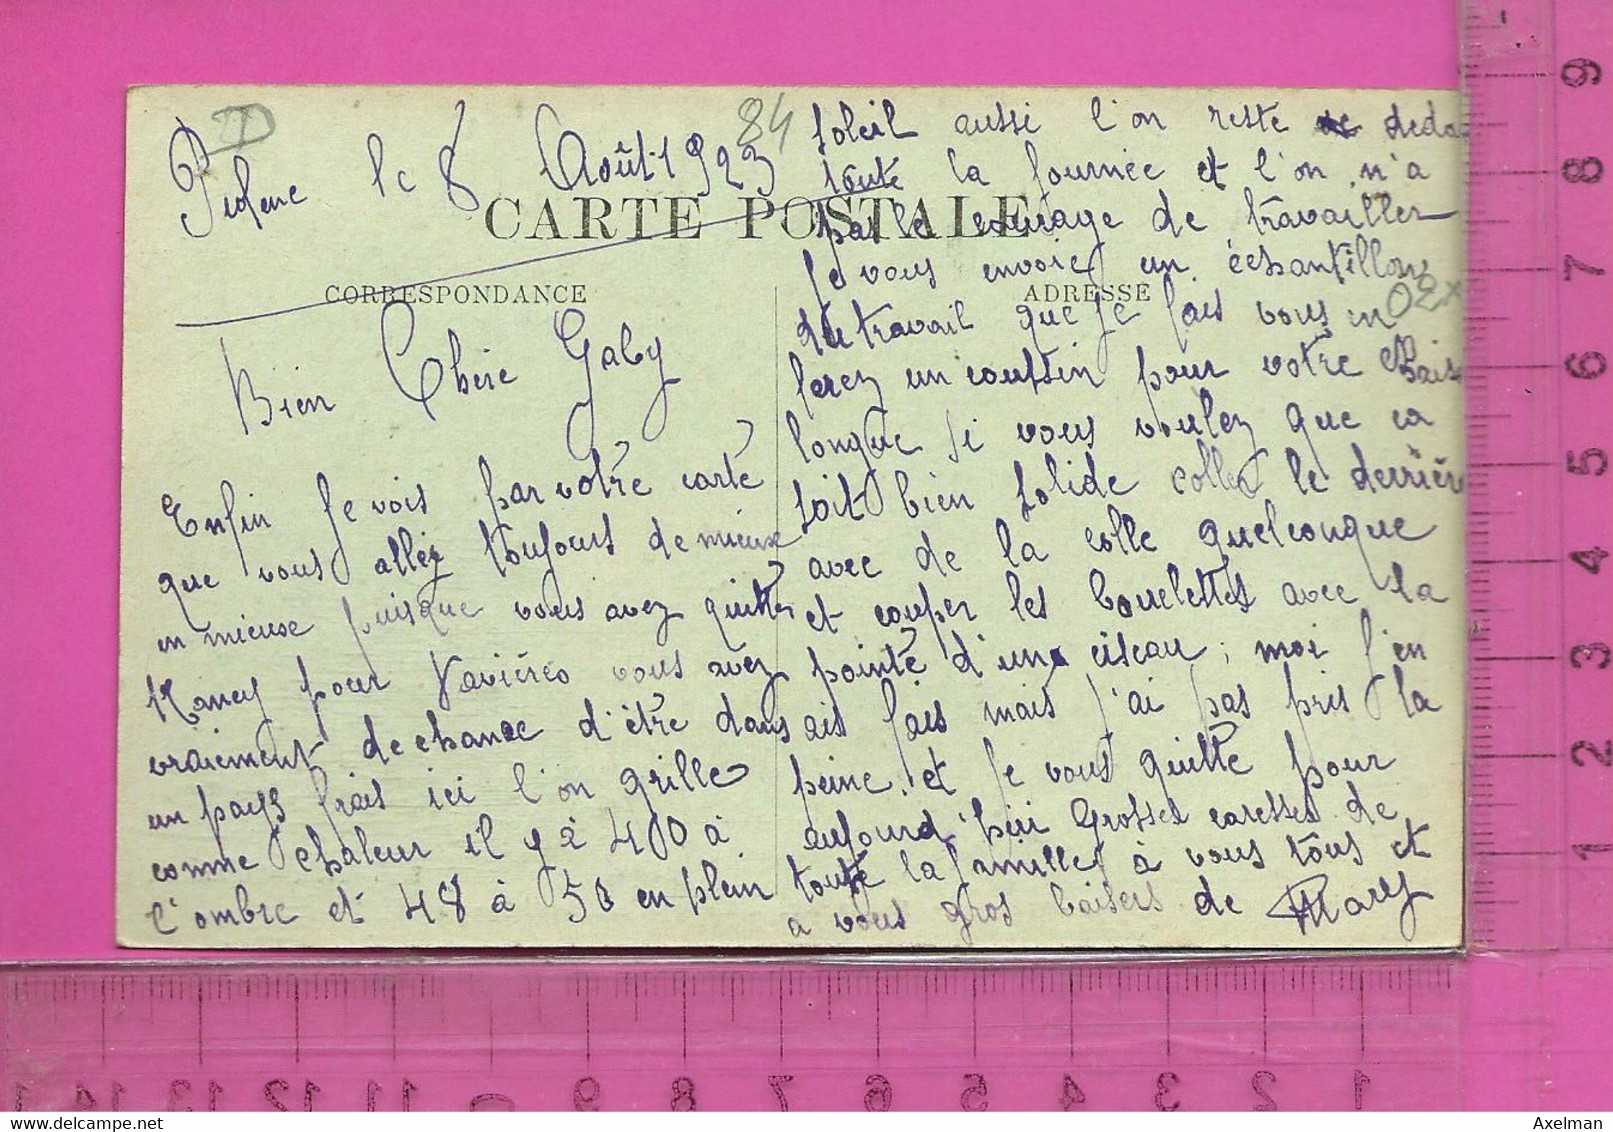 Piolenc le 8 Août 1923
84
CARTE POSTALE
CORRESPONDANCE
ADRESSE
Bien Chère Gaby
Enfin je vois par votre carte
que vous allez toujours de mieux
en mieuse puisque vous avez quitter
Nancy pour Ravières vous avez
vraiement de chance d'être dans
un pays frais ici l'on grille
comme chaleur il y a 40 à
l'ombre et 48 à 50 en plein
soleil aussi l'on reste deda
toute la journée et l'on n'a
pas le courage de travailler
Je vous envoies un échantillon
du travail que je fais vous en
ferez un coussin pour votre Chaise
longue si vous voulez que ca
soit bien solide coller le derrière
avec de la colle quelconque
et couper les bouclettes avec la
pointe d'un ciseau; moi j'en
ais fais mais j'ai pas pris la
peine. et je vous quitte pour
aujourd'hui Grosses caresses de
toute la famille à vous tous et
a vous gros baisers de Mary
9
8
7
6
5
4
3
2
1
14 13 12 11 9 8 7 6 5 4 3 2 1
Axelman